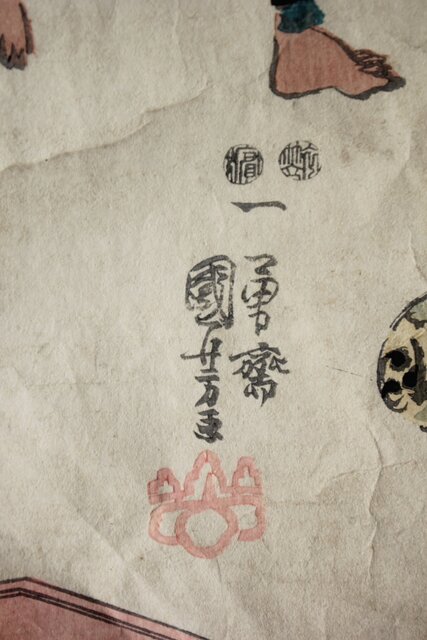 一
勇齋
國芳画